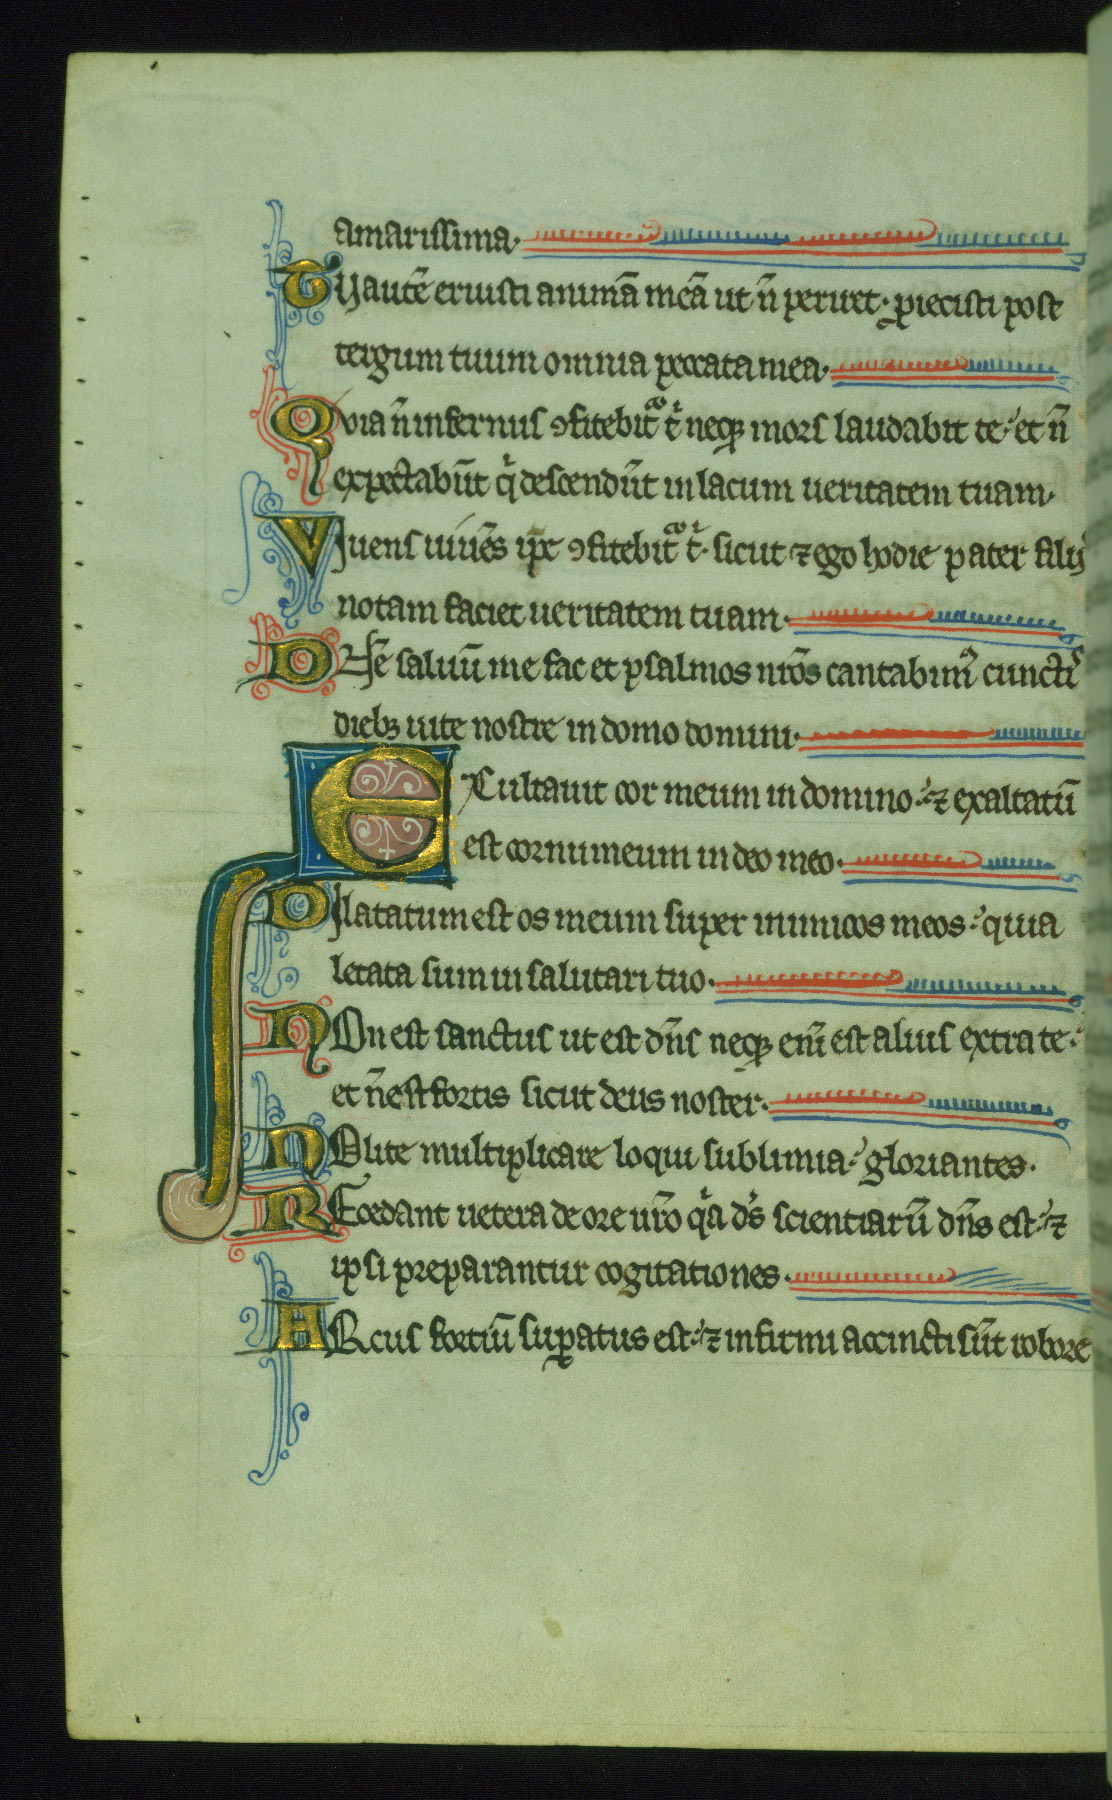 amarissima·
Tu autē eruisti animā meā ut ñ periret· ꝓiecisti post
tergum tuum omnia peccata mea·
Quia ñ infernus ꝯfitebit̃ t̾ neqꝫ mors laudabit te· et ñ
expectabūt q̾ descendūt in lacum ueritatem tuam·
Viuens uiuēs ip̄e ꝯfitebit̃ t̾· sicut ⁊ ego hodie pater filiis
notam faciet ueritatem tuam·
Dn̄e saluū me fac et psalmos nr̄os cantabimꝰ cunctis
diebꝫ uite nostre in domo domini·
EXultauit cor meum in domino· ⁊ exaltatū
est cornu meum in deo meo·
Dilatatum est os meum super inimicos meos· quia
letata sum in salutari tuo·
Non est sanctus ut est dn̄s neqꝫ enī est alius extra te·
et ñ est fortis sicut deus noster·
Nolite multiplicare loqui sublimia· gloriantes·
Recedant uetera de ore ur̄o q̾a ds̄ scientiarū dn̄s est· ⁊
ipsi preparantur cogitationes·
ARcus fortiū suꝑatus est· ⁊ infirmi accincti sūt robore